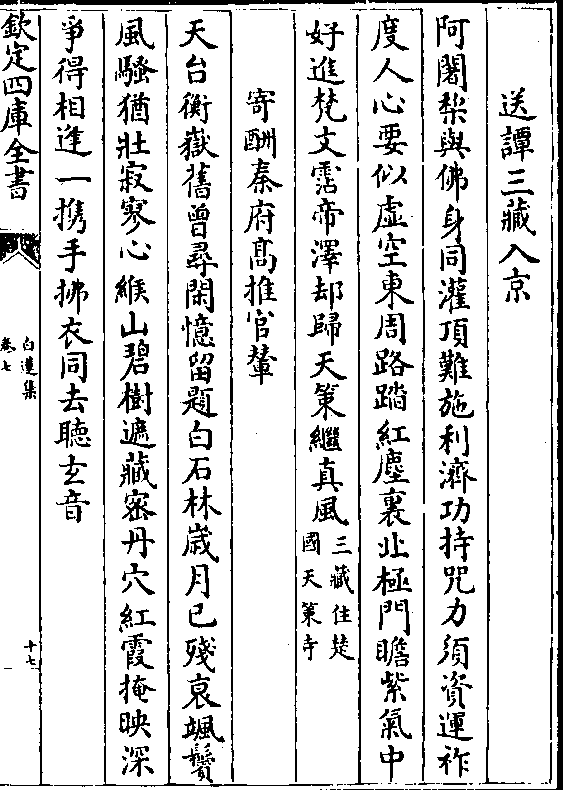 送譚三藏入京
阿闍梨與佛身同灌頂難施利濟功持咒力須資運祚
度人心要似虛空東周路踏紅塵裏北極門瞻紫氣中
好進梵文霑帝澤却歸天策繼真風三藏住楚國天策寺
寄酬秦府髙推官輦
天台衡嶽舊曾尋閑憶留題白石林歲月已殘衰颯鬢
風騷猶壯寂寥心緱山碧樹遮藏密丹穴紅霞掩映深
爭得相逢一攜手拂衣同去聽玄音
欽定四庫全書
白蓮集
卷七
十七